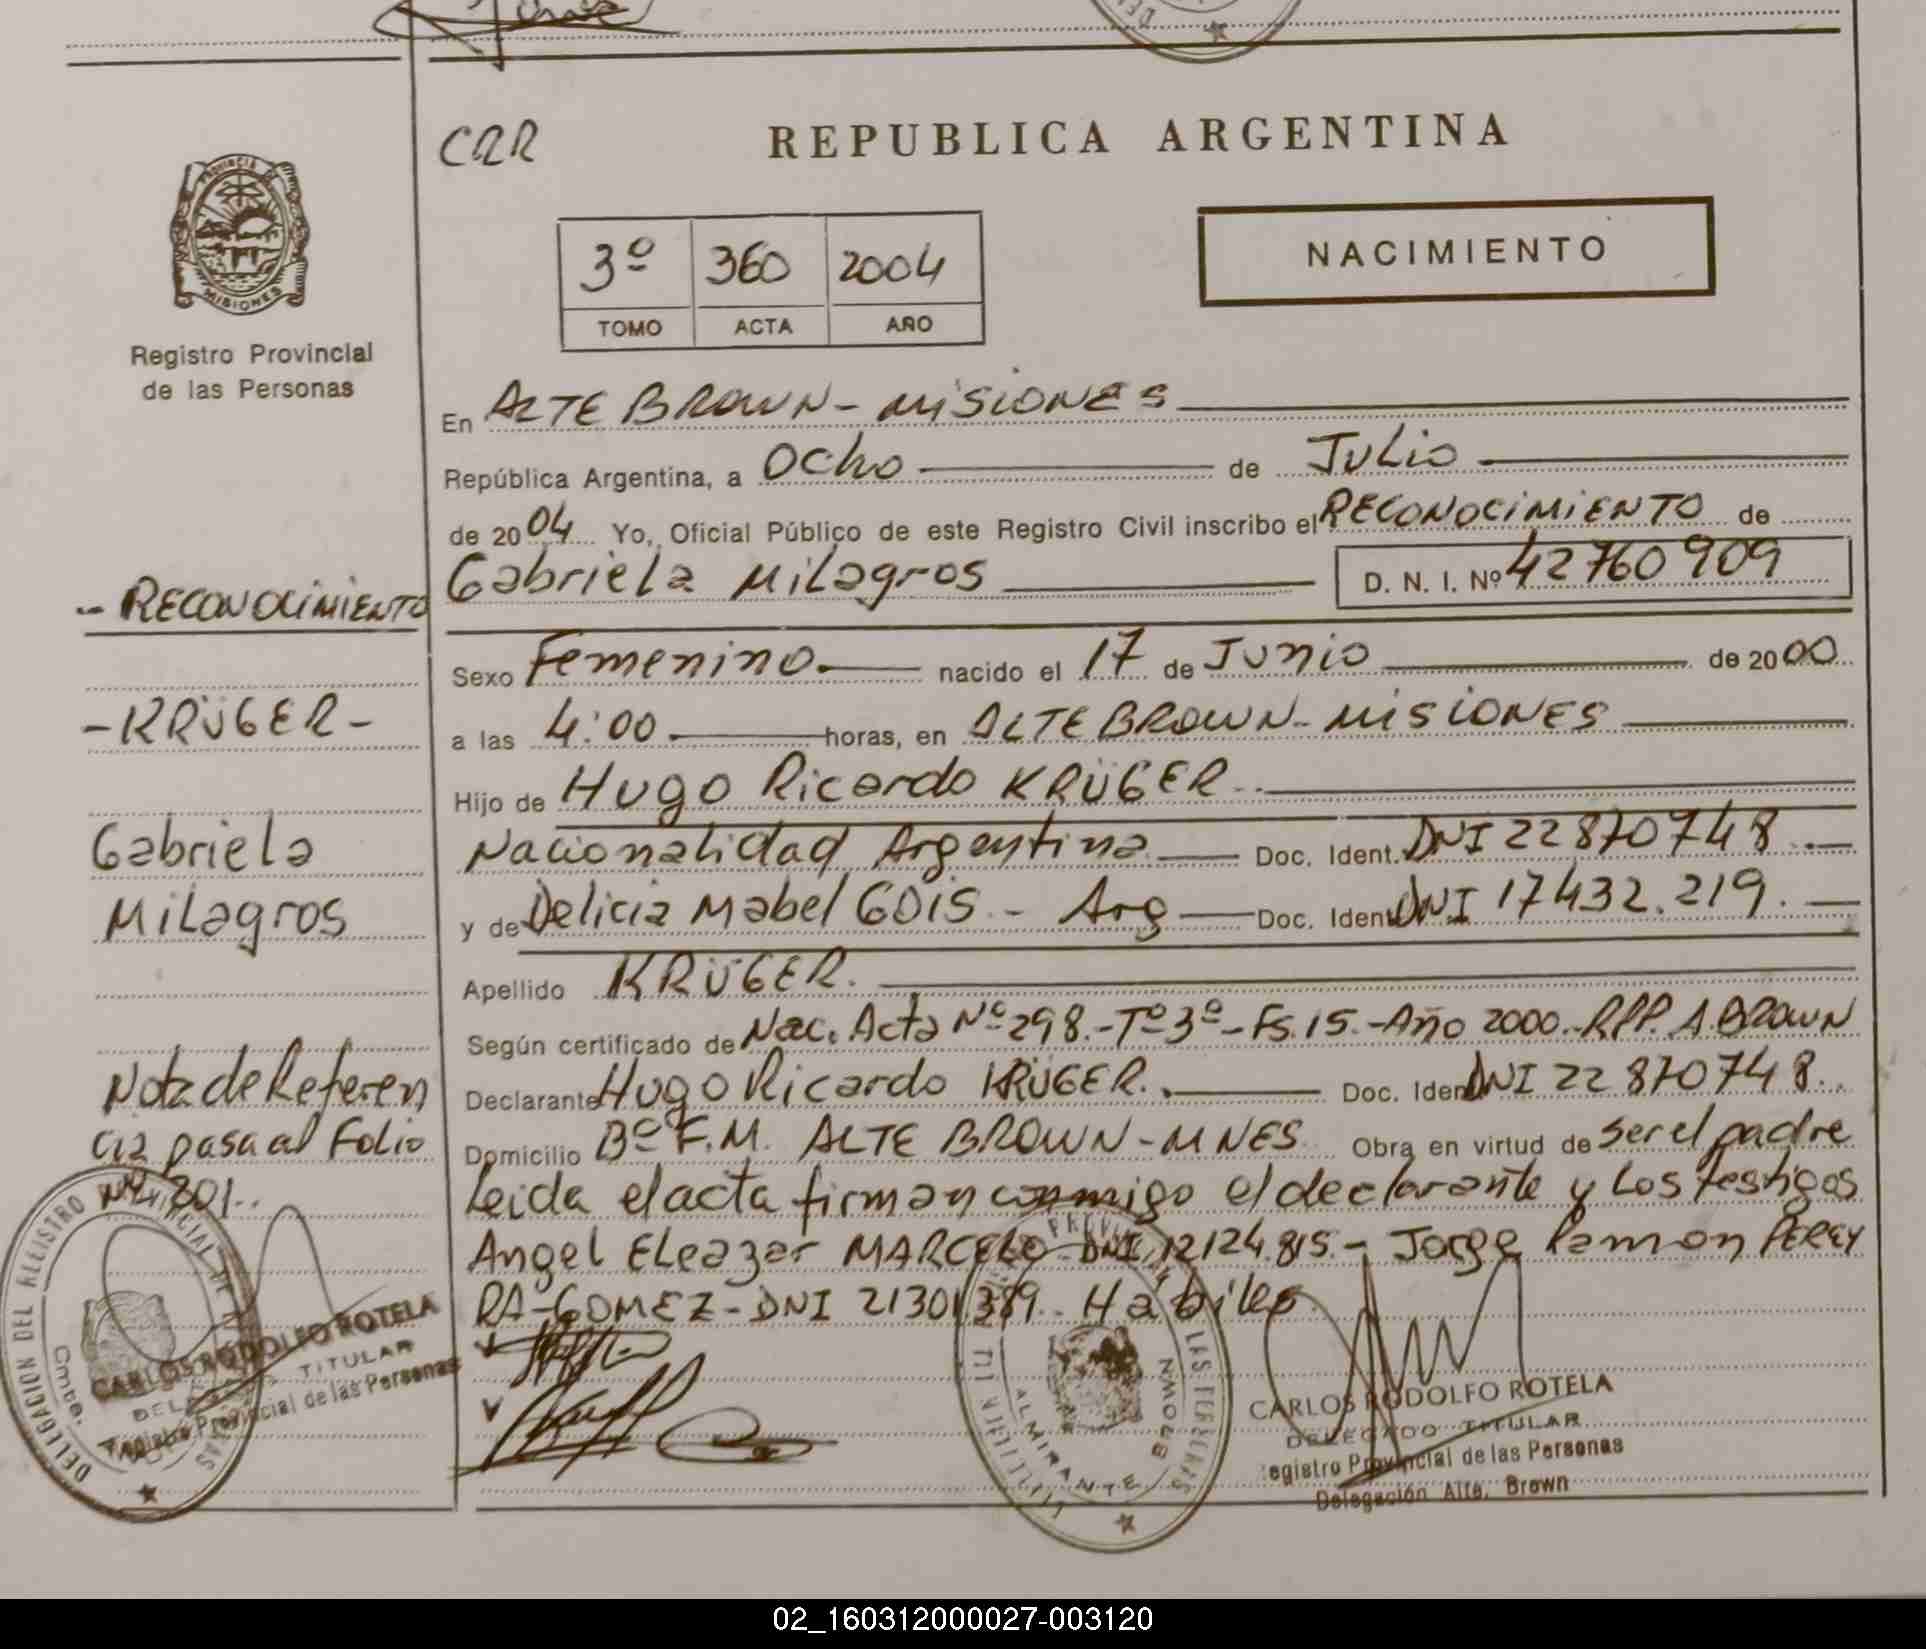 CRR
REPUBLICA ARGENTINA
PROVINCIA DE
MISIONES
3º 360 2004
TOMO ACTA AÑO
NACIMIENTO
Registro Provincial
de las Personas
En ALTE BROWN - MISIONES
República Argentina, a Ocho de Julio
de 2004 Yo, Oficial Público de este Registro Civil inscribo el RECONOCIMIENTO de
Gabriela Milagros D. N. I. Nº 42760909
Sexo Femenino. nacido el 17 de Junio de 2000
a las 4:00 horas, en ALTE BROWN - MISIONES
Hijo de Hugo Ricardo KRÜGER
Nacionalidad Argentina Doc. Ident. DNI 22870748
y de Delicia Mabel GOIS - Arg Doc. Ident. DNI 17432.219.
Apellido KRÜGER.
Según certificado de Nac. Acta Nº 298.-Tº 3º-Fs.15.-Año 2000.-RPP. A. BROWN
Declarante Hugo Ricardo KRÜGER. Doc. Ident. DNI 22870748.
Domicilio Bº F.M. ALTE BROWN-MNES Obra en virtud de ser el padre
Leida el acta firman conmigo el declarante y Los testigos
Angel Eleazar MARCELO DNI 12124.815.- Jorge Ramon PEREY
RA-GOMEZ-DNI 21301389. Habiles
- RECONOCIMIENTO
-KRÜGER-
Gabriela
Milagros
Nota de Referen
cia pasa al Folio
Nº 201.
CARLOS RODOLFO ROTELA
TITULAR
Registro Provincial de las Personas
ALMIRANTE
BROWN
CARLOS RODOLFO ROTELA
DELEGADO TITULAR
Registro Provincial de las Personas
Delegación Alte. Brown
02_160312000027-003120